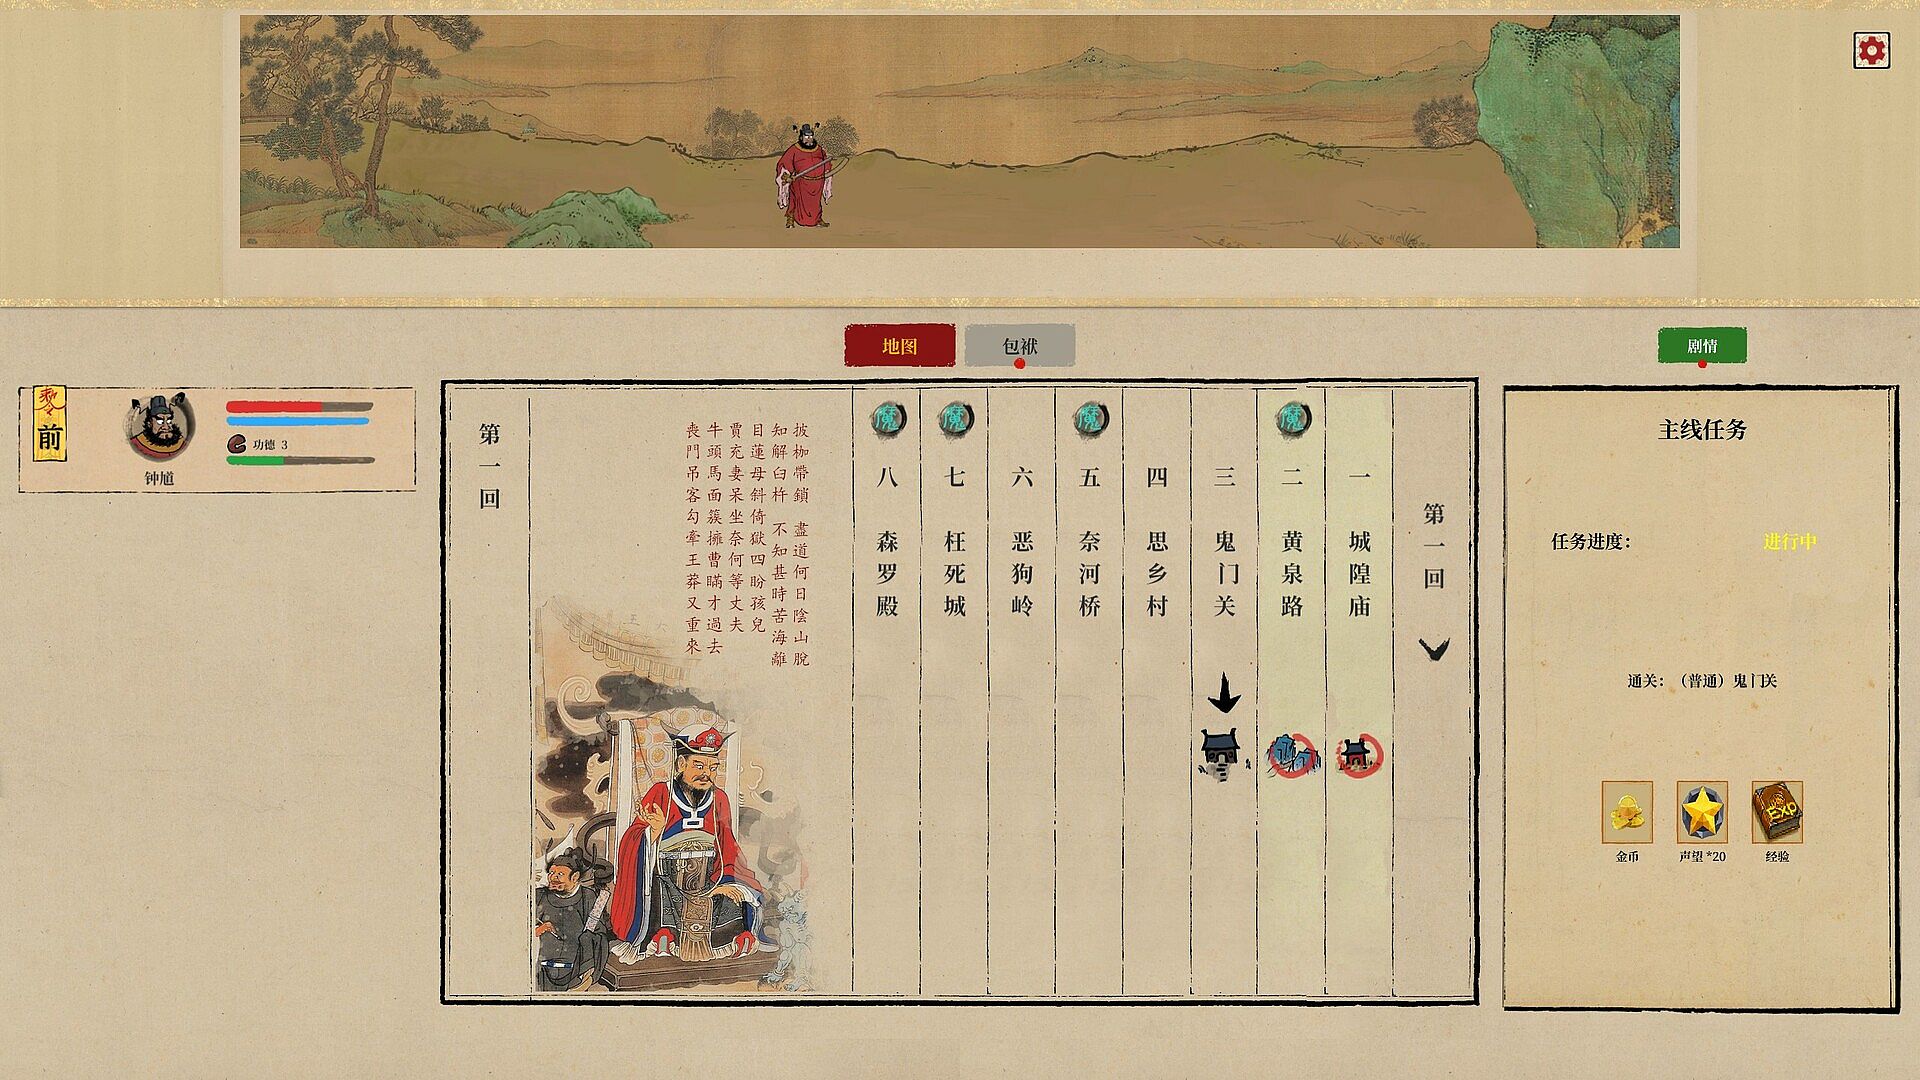 地图
包袱
剧情
敕令
前
钟馗
功德 3
第一回
魔
一 城隍庙
二 黄泉路
魔
三 鬼门关
四 思乡村
五 奈河桥
魔
六 恶狗岭
七 枉死城
魔
八 森罗殿
披枷帶鎖 盡道何日陰山脫
知解臼杵 不知甚時苦海離
目蓮母斜倚獄四盼孩兒
賈充妻呆坐奈何等丈夫
牛頭馬面簇擁曹瞞才過去
喪門吊客勾牽王莽又重來
第一回
主线任务
任务进度：
进行中
通关：（普通）鬼门关
EXP
金币
声望*20
经验